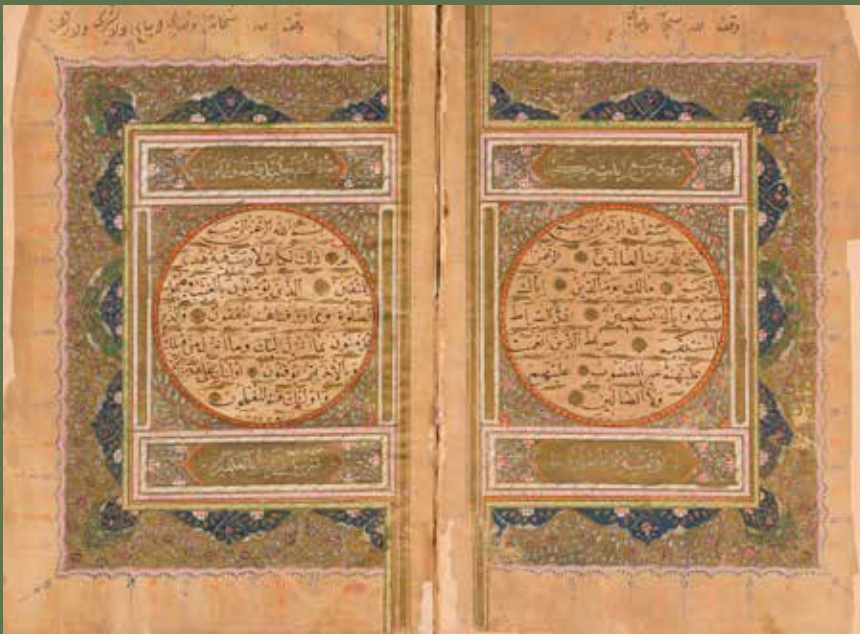 وقف لله
سبع آيات مكية
بسم الله الرحمن الرحيم
الحمد لله رب العالمين الرحمن
الرحيم مالك يوم الدين اياك
نعبد واياك نستعين اهدنا الصراط
المستقيم صراط الذين انعمت
عليهم غير المغضوب عليهم
ولا الضالين
وقف لله ولا
بسم الله الرحمن الرحيم
الم ذلك الكتاب لا ريب فيه هدى
للمتقين الذين يؤمنون بالغيب ويقيمون
الصلوة ومما رزقناهم ينفقون والذين
يؤمنون بما انزل اليك وما انزل من قبلك
وبالاخرة هم يوقنون اولئك على هدى
واولئك هم المفلحون